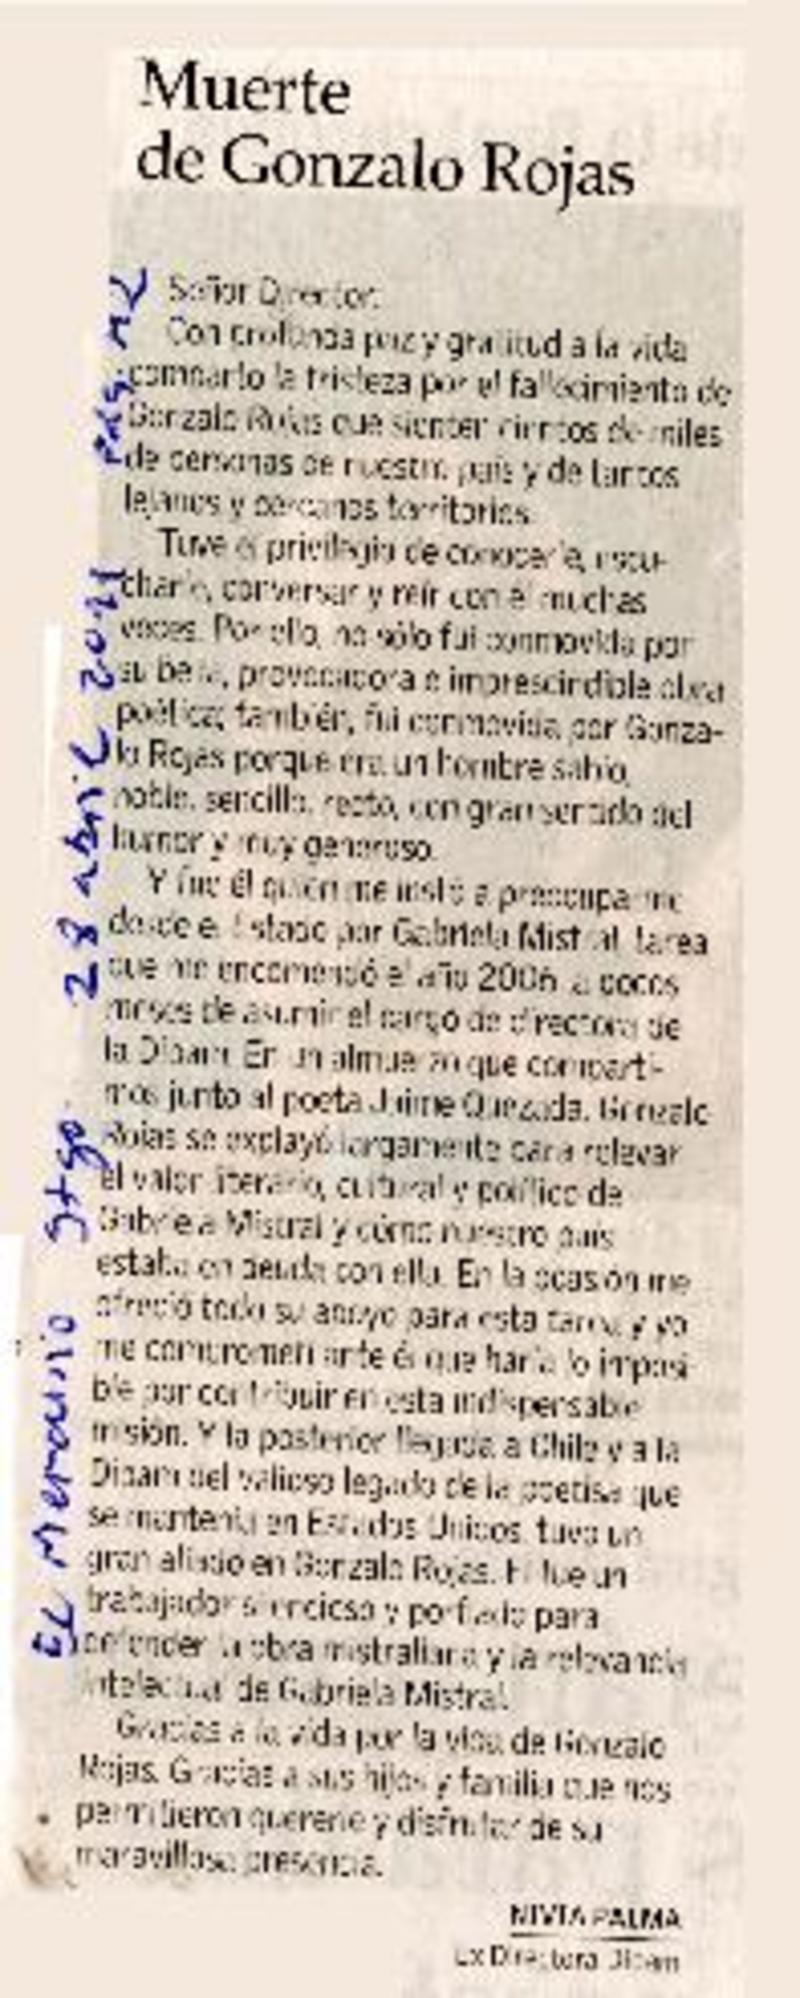 Muerte
de Gonzalo Rojas
Señor Director:
Con profunda paz y gratitud a la vida
comparto la tristeza por el fallecimiento de
Gonzalo Rojas que sienten cientos de miles
de personas de nuestro país y de tantos
lejanos y cercanos territorios.
Tuve el privilegio de conocerle, escu-
charle, conversar y reír con él muchas
veces. Por ello, no sólo fui conmovida por
su bella, provocadora e imprescindible obra
poética; también, fui conmovida por Gonza-
lo Rojas porque era un hombre sabio,
noble, sencillo, recto, con gran sentido del
humor y muy generoso.
Y fue él quien me instó a preocuparme
desde el Estado por Gabriela Mistral, tarea
que me encomendó el año 2006, a pocos
meses de asumir el cargo de directora de
la Dibam. En un almuerzo que comparti-
mos junto al poeta Jaime Quezada, Gonzalo
Rojas se explayó largamente para relevar
el valor literario, cultural y político de
Gabriela Mistral y cómo nuestro país
estaba en deuda con ella. En la ocasión me
ofreció todo su apoyo para esta tarea y yo
me comprometí ante él que haría lo imposi
ble por contribuir en esta indispensable
misión. Y la posterior llegada a Chile y a la
Dibam del valioso legado de la poetisa que
se mantenía en Estados Unidos, tuvo un
gran aliado en Gonzalo Rojas. El fue un
trabajador silencioso y porfiado para
defender la obra mistraliana y la relevancia
intelectual de Gabriela Mistral.
Gracias a la vida por la vida de Gonzalo
Rojas. Gracias a sus hijos y familia que nos
permitieron quererle y disfrutar de su
maravillosa presencia.
NIVIA PALMA
Ex Directora Dibam
El Mercurio Stgo. 28 abril 2011 pág. A2